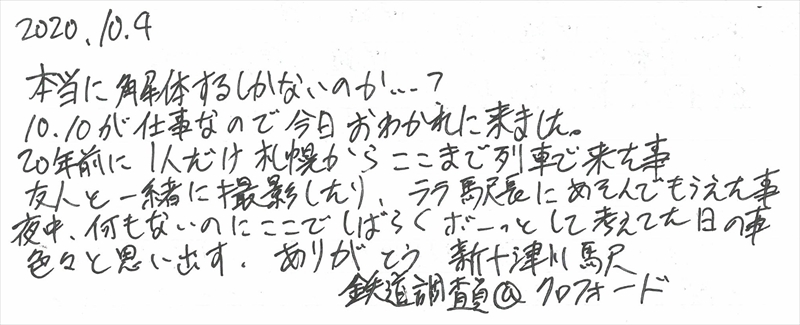 2020.10.4
本当に解体するしかないのか…?
10.10が仕事なので今日おわかれに来ました。
20年前に1人だけ札幌からここまで列車で来た事
友人と一緒に撮影したり、ララ駅長にあそんでもらえた事
夜中、何もないのにここでしばらくボーっとして考えてた日の事
色々と思い出す。ありがとう 新十津川駅
鉄道調査員@クロフォード